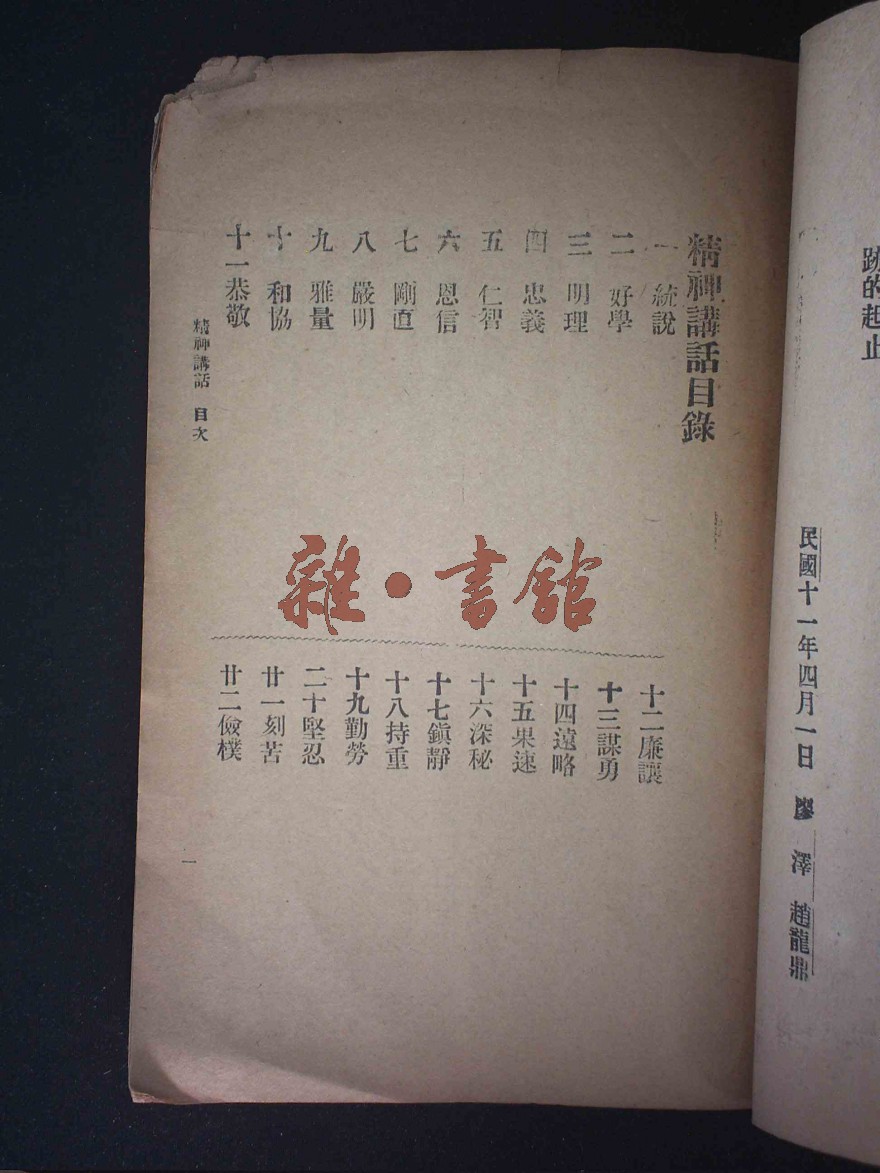 跡的起止
民國十一年四月一日 廖澤 趙龍鼎
精神講話目錄
一 統說
二 好學
三 明理
四 忠義
五 仁智
六 恩信
七 剛直
八 嚴明
九 雅量
十 和協
十一恭敬
十二廉讓
十三謀勇
十四遠略
十五果速
十六深秘
十七鎮靜
十八持重
十九勤勞
二十堅忍
廿一刻苦
廿二儉樸
精神講話 目次
一
雜·書館